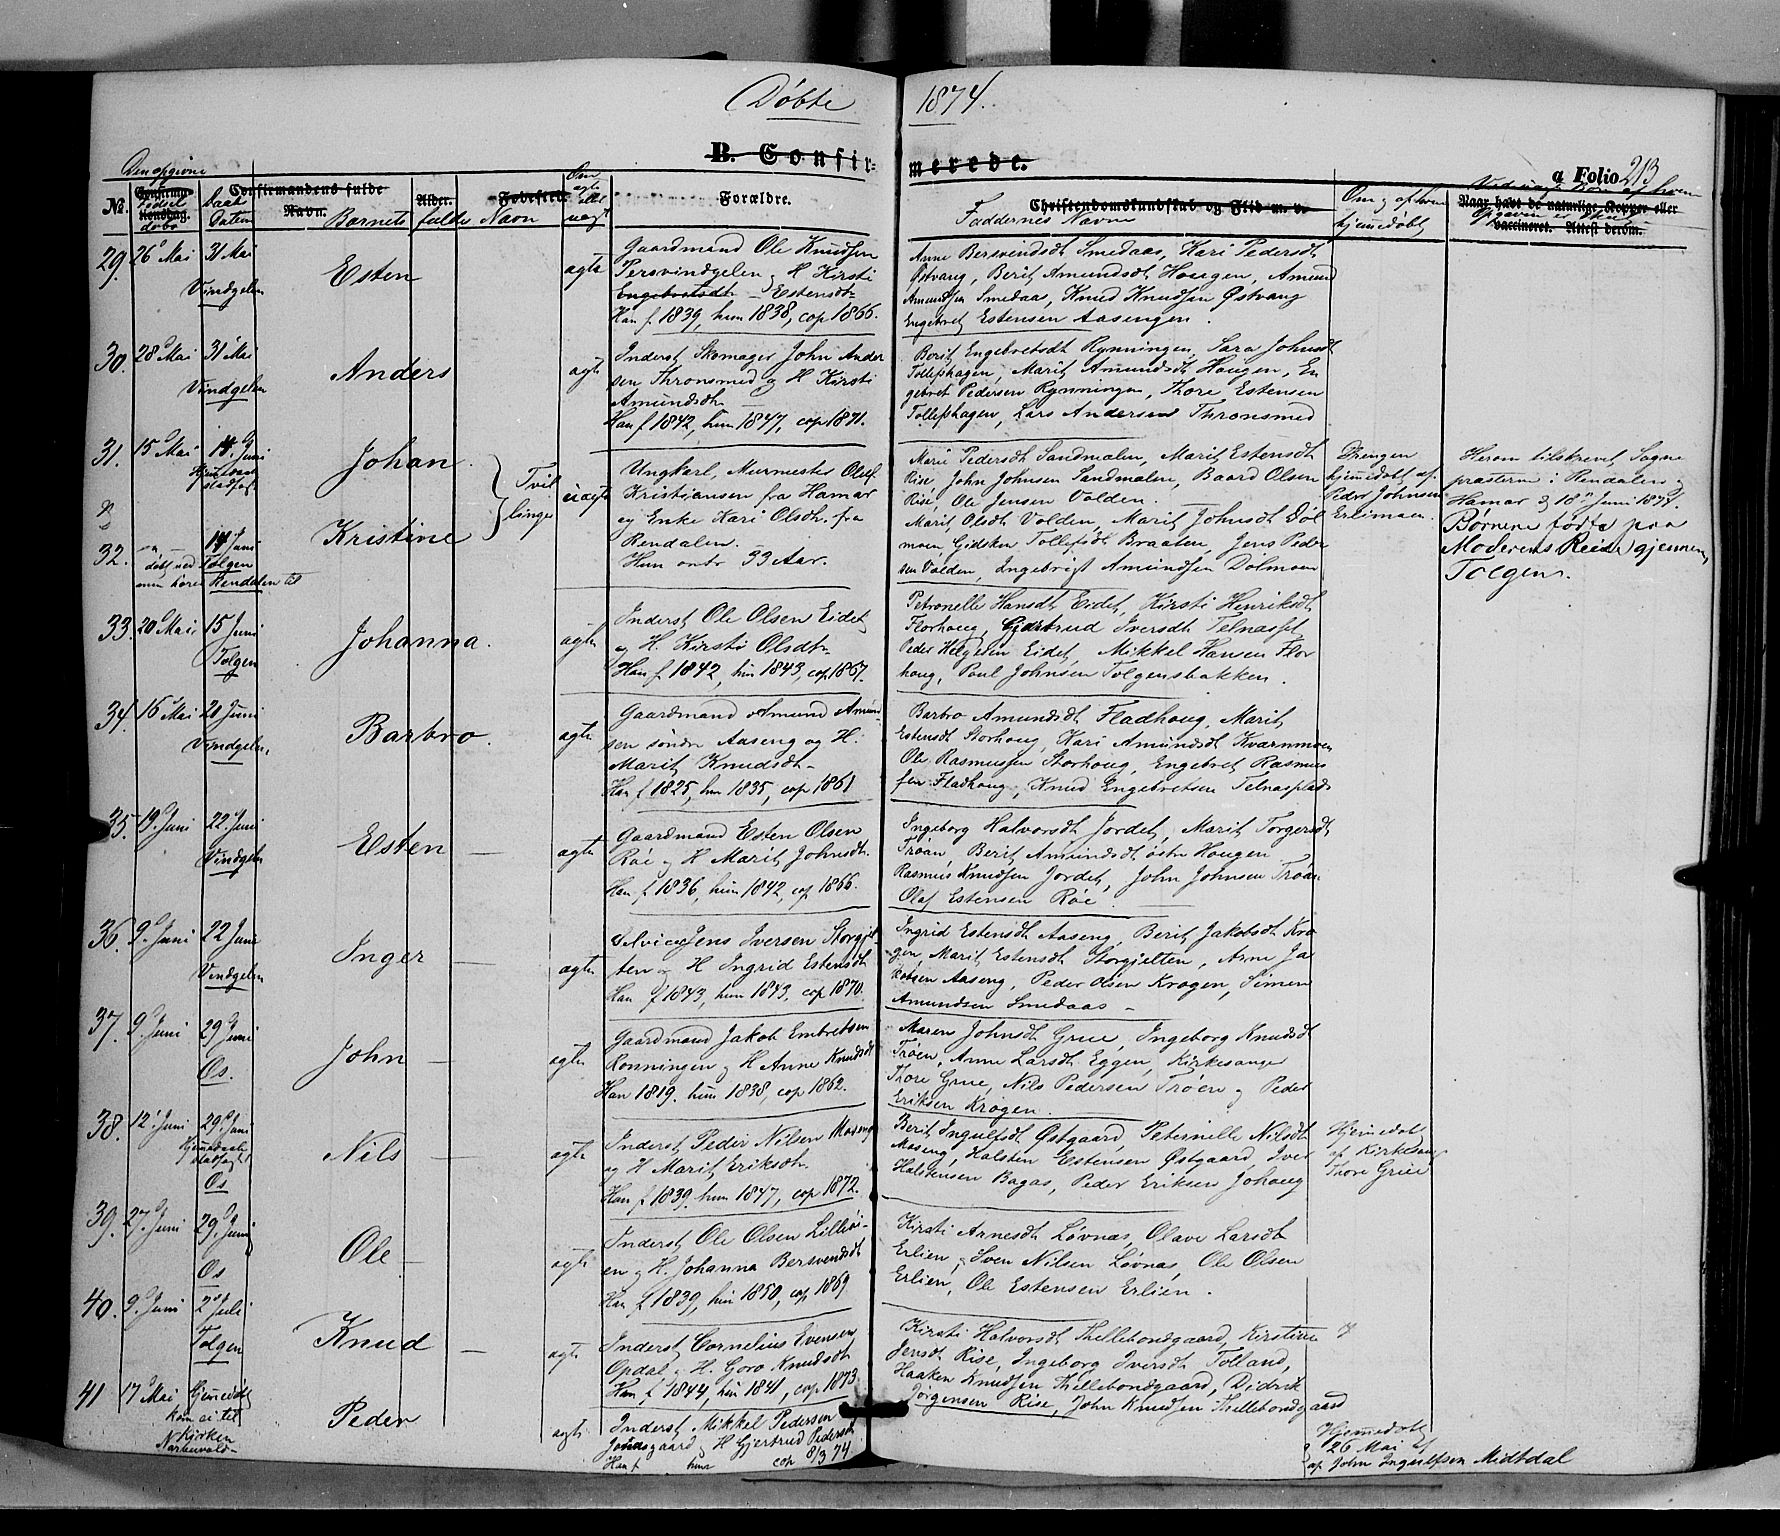 Døbte 1874.
B. Confir- merede.
a Folio 213
Den opgivne
No.
Confirma-
Fødsel
tionsdag.
daab
Daab
Datum
Confirmandens fulde
Navn.
Barnets fulde Navn
Alder.
Fødested
Om
ægte
eller
uægt
Forældre.
Christendomskundskab og Flid m. v.
Faddernes Navne
Om og af hvem
hjemmedøbt
Naar havt de naturlige Kopper eller
vaccineret. Attest derom.
29. 26 Mai 31 Mai
Vindgelen
Esten
ægte
Gaardmand Ole Knudsen
Persvindgelen og H. Kirsti
Engebretsdtr Estensdtr
Han f. 1839, hun 1838, cop 1866.
Anne Bersvendsdt Smedaas, Kari Pedersdt
Østvang, Berit Amundsdt Hougen, Amund
Amundsen Smedaas, Knud Knudsen Østvang
Engebret Estensen Aasengen.
30. 28 Mai 31 Mai
Vindgelen
Anders
ægte
Inderst Skomager John Ander
sen Thronsmed og H Kirsti
Amundsdtr
Han f 1842, hun 1847, cop 1871.
Berit Engebretsdt Rynningen, Sara Johnsdt
Tollefshagen, Marit Amundsdt Hougen, En
gebret Pedersen Rynningen, Thore Estensen
Tollefshagen, Lars Andersen Thronsmed
31. 15 Mai 14. Juni
stadfæst
Johan
Tvil
linger
uægte
Ungkarl, Murmester Oluf
Kristiansen fra Hamar
og Enke Kari Olsdtr. fra
Rendalen.
Hun omtr 33 Aar.
Marie Pedersdt Sandmælen, Marit Estensdt
Rise, John Johnsen Sandmælen, Baard Olsen
Rise, Ole Jensen Volden.
Drengen
hjemmedøbt af
Peder Johnsen
Erlimoen.
Herom tilskrevet Sogne
præsterne i Rendalen og
Hamar d 18de Juni 1874.
Børnene fødte paa
Moderens Reise gjennem
Tolgen.
&
32. 14 Juni
døbt ved Tolgen
Rendalen til
Kristine
Marit Olsdt Volden, Marit Johnsdt Døl
moen Gidsken Tollefsdt Braaten, Jens Peder
sen Volden, Ingebrigt Amundsen Dølmoen
33. 20 Mai 15 Juni
Tolgen
Johanna.
ægte
Inderst Ole Olsen Eidet
og H. Kirsti Olsdtr
Han f 1842, hun 1843, cop 1867.
Petronelle Hansdt Eidet, Kirsti Henriksdt
Florhoug, Gjertrud Iversdt Telnesset,
Peder Helgesen Eidet, Mikkel Hansen Flor
houg, Paul Johnsen Tolgensbakken.
34. 16 Mai 20 Juni
Vindgelen.
Barbro.
ægte
Gaardmand Amund Amund-
sen søndre Aaseng og H.
Marit Knudsdtr
Han f 1825, hun 1835, cop 1861
Barbro Amundsdt Fladhoug, Marit
Estensdt Storhoug, Kari Amundsdt Kværnmoen
Ole Rasmussen Storhoug, Engebret Rasmus
sen Fladhoug, Knud Engebretsen Telnesplads
35. 19 Juni 22. Juni
Vindgelen
Esten
ægte
Gaardmand Esten Olsen
Røe og H Marit Johnsdt.
Han f 1836, hun 1842, cop 1866.
Ingeborg Halvorsdt Jordet, Marit Torgersdt
Trøan, Berit Amundsdt østre Hougen
Rasmus Knudsen Jordet, John Johnsen Trøan
Olaf Estensen Røe.
36. 9. Juni 22 Juni
Vindgelen
Inger
ægte
Jens Iversen Storgjel
ten og H Ingrid Estensdt
Han f 1843, hun 1843, cop 1870.
Ingrid Estensdt Aaseng, Berit Jakobsdt Kro
gen, Marit Estensdt Storgjelten, Arne Ja
kobsen Aaseng, Peder Olsen Krogen, Simen
Amundsen Smedaas
37. 9. Juni 29 Juni
Os.
John
ægte
Gaardmand Jakob Embretsen
Rønningen og H Anne Knudsdt
Han 1819. hun 1838, cop 1862.
Maren Johnsdt Grue, Ingeborg Knudsdt
Trøen, Anne Larsdt Eggen, Kirkesanger
Thore Grue, Nils Pedersen Trøen og Peder
Eriksen Krogen.
38. 12. Juni 29. Juni
Hjemmedaab
stadfæst
Os
Nils
ægte
Inderst Peder Nilsen Moseng
og H Marit Eriksdtr.
Han f 1839. hun 1847, cop 1872.
Berit Ingulfsdt Østgaard, Peternille Nilsdt
Moseng, Halsten Estensen Østgaard, Iver
Halstensen Bagas, Peder Eriksen Johoug
Hjemmedøbt
af Kirkesang
Thore Grue
39. 27. Juni 29. Juni
Os
Ole
ægte
Inderst Ole Olsen Lilleøi-
en og H. Johanna Bersvendsdt
Han f 1839, hun 1850, cop 1869
Kirsti Arnesdt Løvnæs, Olave Larsdt
Erlien, Sven Nilsen Løvnæs, Ole Olsen
Erlien, Ole Estensen Erlien.
40. 9. Juni 2 Juli
Tolgen
Knud
ægte
Inderst Cornelius Evensen
Opdal og H. Goro Knudsdt
Han f 1844, hun 1841, cop 1873
Kirsti Halvorsdt Hellebondgaard, Kirstine
Jensdt Rise, Ingeborg Iversdt Tolland,
Haaken Knudsen Hellebondgaard, Didrik
Jørgensen Rise, John Knudsen Hellebondgaard
41 17 Mai Hjemmedøbt
kom ei til
Kirken
Peder
ægte
Inderst Mikkel Pedersen
Jonasgaard og H Gjertrud Pedersdt
Han f hun cop 8/3 74.
Hjemmedøbt
26 Mai
af John Ingulfsen Midtdal